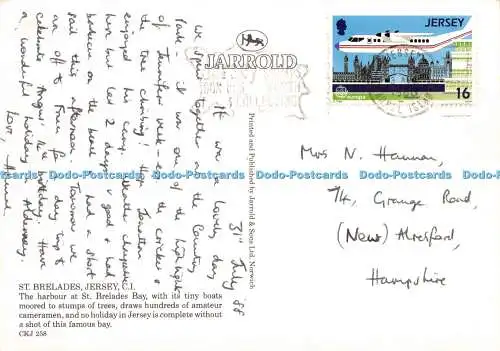 31st July '88
It was one lovely day
we spent together at the Country
Park - it was one of the highlights
of Jennifer's week - even the cricket &
the tree climbing! Hope Jonathan
enjoyed his camp. Weather changeable
here but last 2 days v good & had
barbecue on the beach. Had a short
sail this afternoon. Tomorrow we
are off to France for day trip to
celebrate Angus' 1st birthday. Have
a wonderful holiday in Alderney.
Love,
JARROLD
Printed and Published by Jarrold & Sons Ltd. Norwich
JERSEY
16
Mrs N. Hannan,
74, Grange Road,
(New) Alresford,
Hampshire
ST. BRELADES, JERSEY, C.I.
The harbour at St. Brelades Bay, with its tiny boats
moored to stumps of trees, draws hundreds of amateur
cameramen, and no holiday in Jersey is complete without
a shot of this famous bay.
CKJ 258
Dodo-Postcards Dodo-Postcards Dodo-Postcards Dodo-Postcards